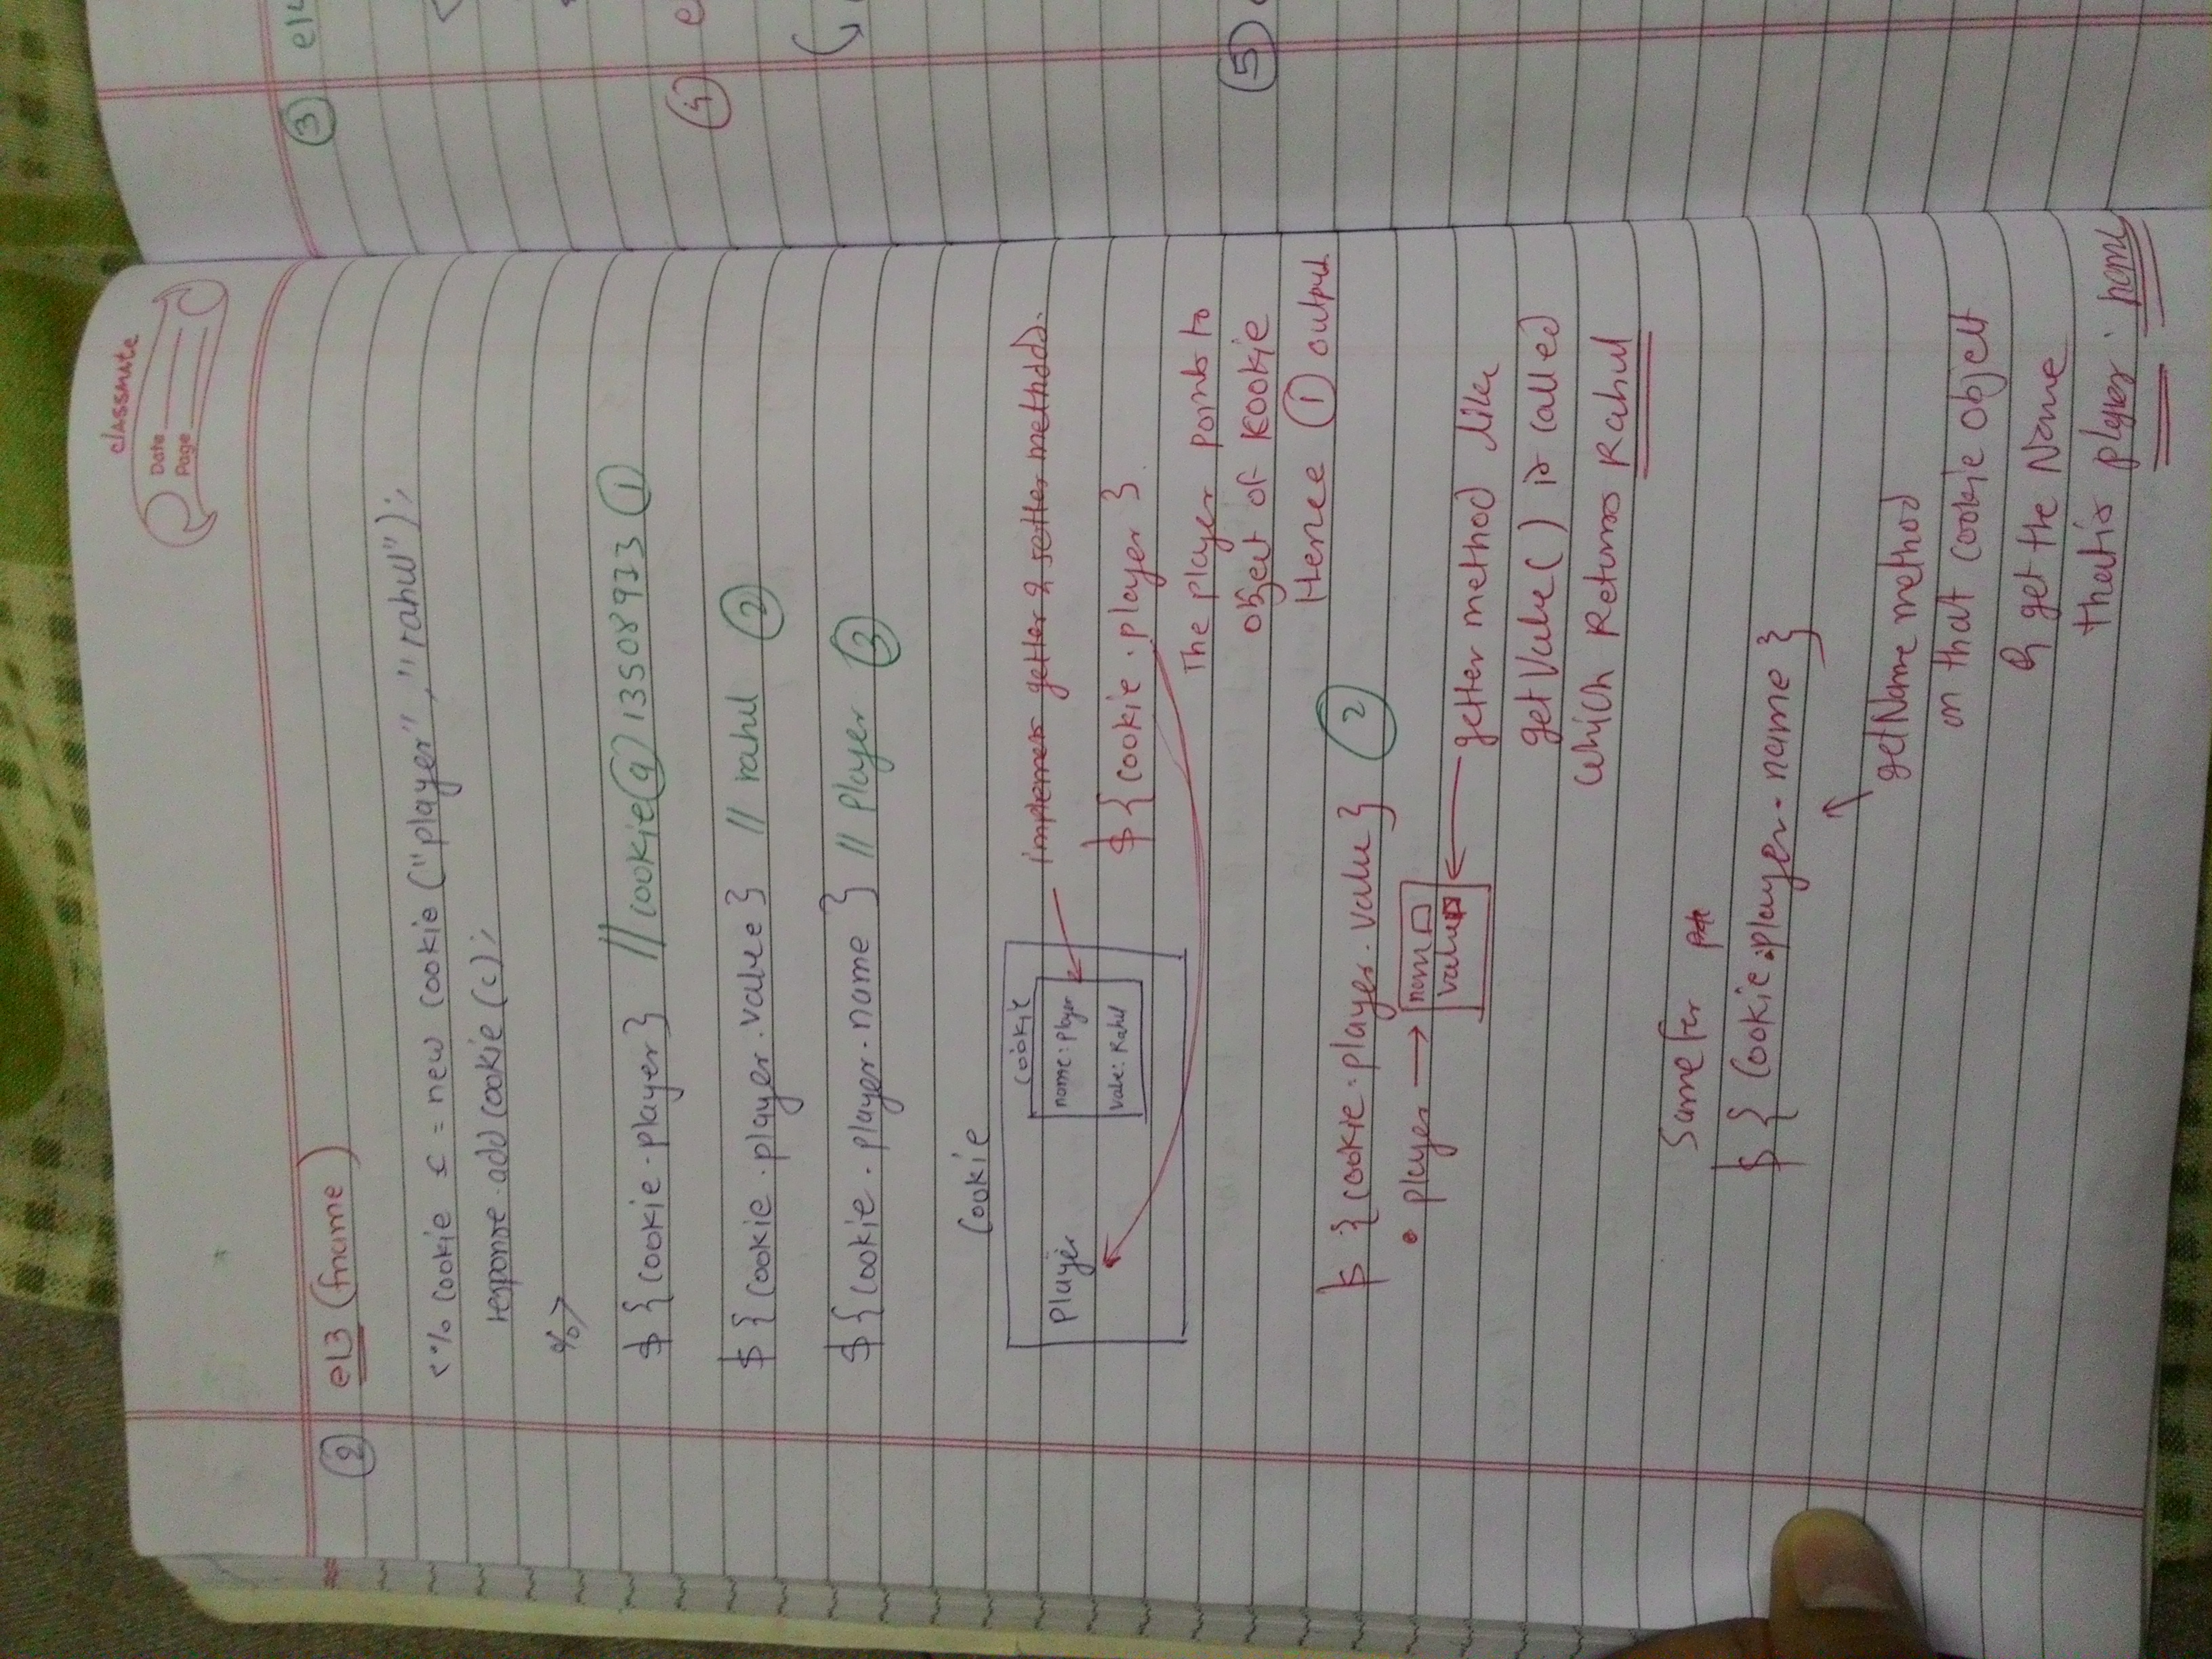 classmate
Date
Page
② el3 (fname)
<% cookie c = new cookie ("player", "rahul");
response.addcookie(c);
%>
${cookie.player} // cookie@13508933 ①
${cookie.player.value} // rahul ②
${cookie.player.name} // player ③
Cookie
cookie
player
name: player
value: Rahul
implements getter & setter methods.
${cookie.player}
The player points to
object of kookie
Hence ① output
${cookie.player.value} ②
• player → name
value
getter method like
getValue() is called
which Returns Rahul
Same for
${Cookie.player.name}
getName method
on that cookie object
& get the Name
that is player. name
③ el4
④ e
⑤